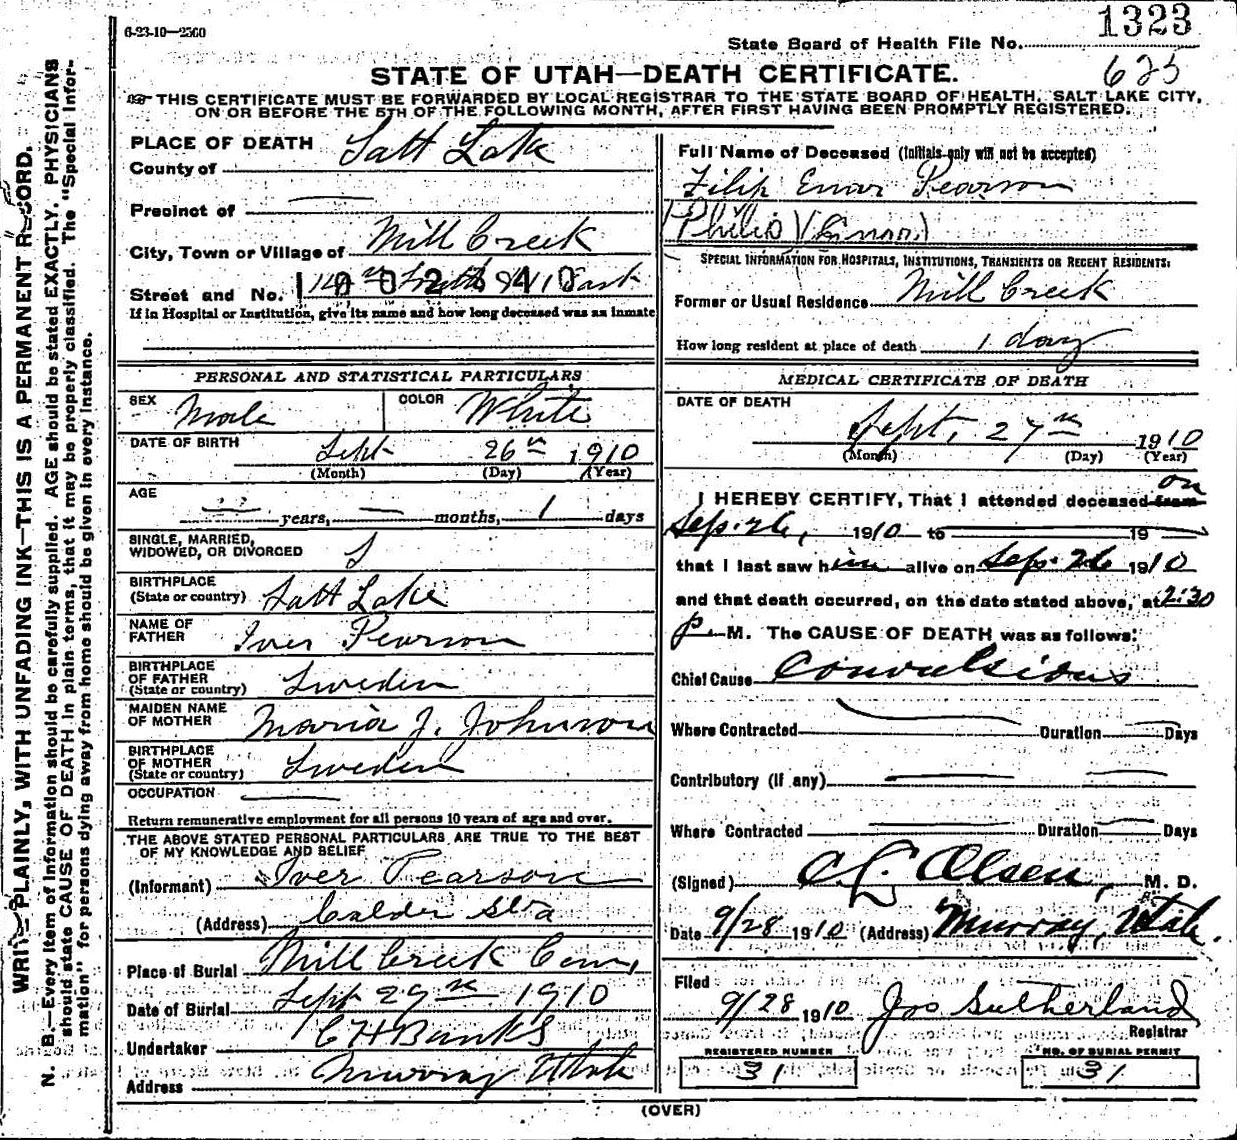 6-23-10—2500
1323
State Board of Health File No.
625
STATE OF UTAH—DEATH CERTIFICATE.
THIS CERTIFICATE MUST BE FORWARDED BY LOCAL REGISTRAR TO THE STATE BOARD OF HEALTH, SALT LAKE CITY,
ON OR BEFORE THE 5TH OF THE FOLLOWING MONTH, AFTER FIRST HAVING BEEN PROMPTLY REGISTERED.
WRITE PLAINLY, WITH UNFADING INK—THIS IS A PERMANENT RECORD.
N. B.—Every item of information should be carefully supplied. AGE should be stated EXACTLY. PHYSICIANS
should state CAUSE OF DEATH in plain terms, that it may be properly classified. The "Special Infor-
mation" for persons dying away from home should be given in every instance.
PLACE OF DEATH
County of Salt Lake
Precinct of —
City, Town or Village of Mill Creek
Street and No. 14th South 9th East
1002840
If in Hospital or Institution, give its name and how long deceased was an inmate
PERSONAL AND STATISTICAL PARTICULARS
SEX Male COLOR White
DATE OF BIRTH Sept 26th 1910
(Month) (Day) (Year)
AGE
— years, — months, 1 days
SINGLE, MARRIED,
WIDOWED, OR DIVORCED S
BIRTHPLACE
(State or country) Salt Lake
NAME OF
FATHER Iver Pearson
BIRTHPLACE
OF FATHER
(State or country) Sweden
MAIDEN NAME
OF MOTHER Maria J. Johnson
BIRTHPLACE
OF MOTHER
(State or country) Sweden
OCCUPATION —
Return remunerative employment for all persons 10 years of age and over.
THE ABOVE STATED PERSONAL PARTICULARS ARE TRUE TO THE BEST
OF MY KNOWLEDGE AND BELIEF
(Informant) Iver Pearson
(Address) Calder Sta
Place of Burial Mill Creek Cem,
Date of Burial Sept 29th 1910
Undertaker C H Banks
Address Murray Utah
Full Name of Deceased (Initials only will not be accepted)
Filip Einar Pearson
(Philip) (Einar)
SPECIAL INFORMATION FOR HOSPITALS, INSTITUTIONS, TRANSIENTS OR RECENT RESIDENTS:
Former or Usual Residence Mill Creek
How long resident at place of death 1 day
MEDICAL CERTIFICATE OF DEATH
DATE OF DEATH
Sept. 27th 1910
(Month) (Day) (Year)
on
I HEREBY CERTIFY, That I attended deceased from
Sep. 26, 1910 to — 19
that I last saw him alive on Sep. 26 1910
and that death occurred, on the date stated above, at 2:30
p. M. The CAUSE OF DEATH was as follows:
Chief Cause Convulsions
Where Contracted — Duration — Days
Contributory (if any) — —
Where Contracted — Duration — Days
(Signed) C L Olsen, M. D.
Date 9/28 1910 (Address) Murray, Utah.
Filed
9/28 1910 Jos Sutherland
Registrar
REGISTERED NUMBER
31
NO. OF BURIAL PERMIT
31
(OVER)